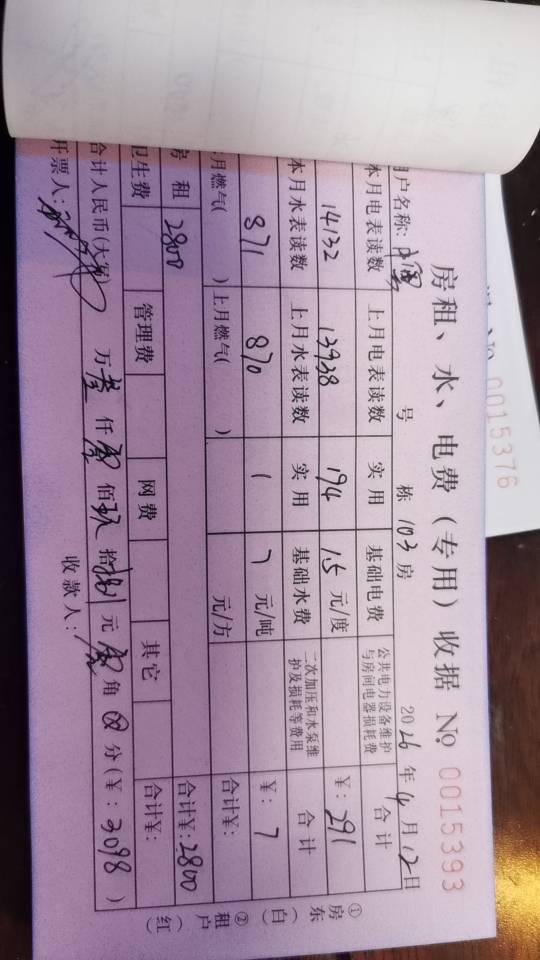 № 0015376
房租、水、电费（专用）收据 № 0015393
户名称: 号 栋 103 房 2026 年 4 月 12 日
本月电表读数 上月电表读数 实用 基础电费 公共电力设备维护与房间电器损耗费 合计
14132 13938 194 1.5 元/度 ¥: 291
本月水表读数 上月水表读数 实用 基础水费 二次加压和水泵维护及损耗等费用 合计
871 870 1 7 元/吨 ¥: 7
月燃气( ) 上月燃气( ) 元/方 合计¥:
房租 2800 合计¥: 2800
卫生费 管理费 网费 其它 合计¥:
合计人民币(大写) 万 叁 仟 零 佰 玖 拾 捌 元 零 角 分(¥: 3098 )
开票人: 收款人:
①房东(白) ②租户(红)